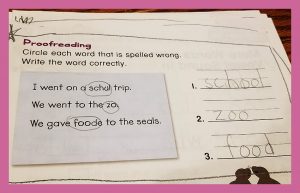 Proofreading
Circle each word that is spelled wrong.
Write the word correctly.
I went on a schul trip.
We went to the zo.
We gave foode to the seals.
1. school
2. zoo
3. food